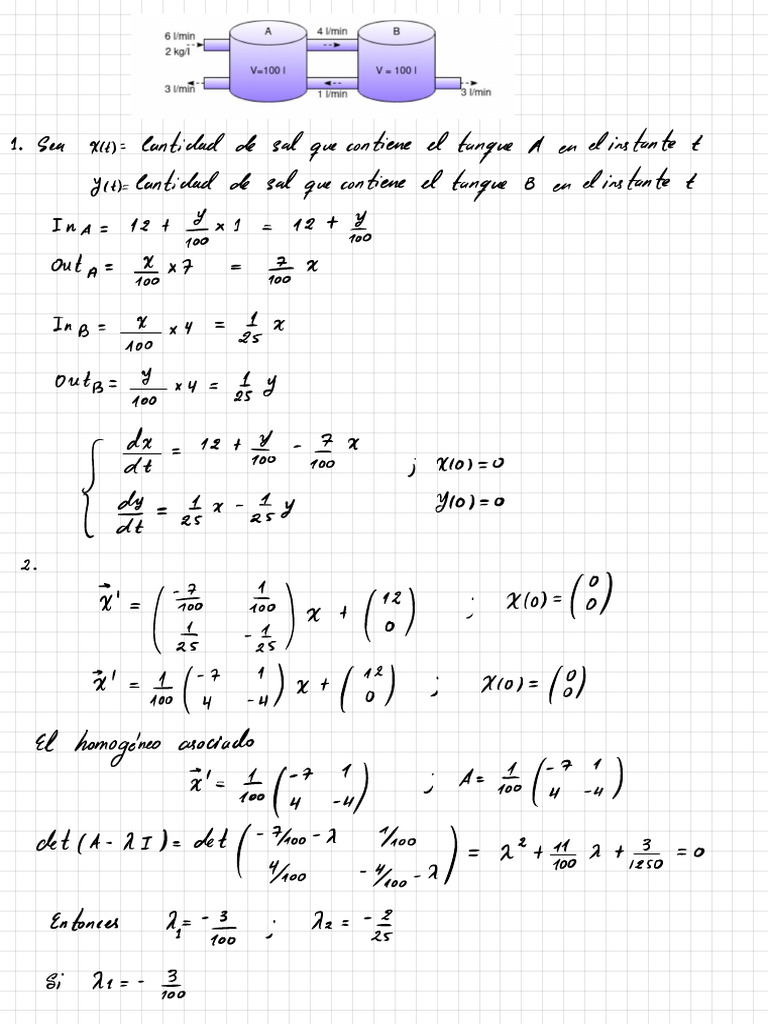 6 l/min
2 kg/l
A
4 l/min
B
V=100 l
V = 100 l
3 l/min
1 l/min
3 l/min
1. Sea x(t)= Cantidad de sal que contiene el tanque A en el instante t
y(t)= Cantidad de sal que contiene el tanque B en el instante t
In_A = 12 + y/100 x 1 = 12 + y/100
Out_A = x/100 x 7 = 7/100 x
In_B = x/100 x 4 = 1/25 x
Out_B = y/100 x 4 = 1/25 y
{ dx/dt = 12 + y/100 - 7/100 x ; x(0)=0
dy/dt = 1/25 x - 1/25 y y(0)=0
2.
x⃗' = ( -7/100 1/100 ; 1/25 -1/25 ) x + ( 12 ; 0 ) ; X(0) = ( 0 ; 0 )
x⃗' = 1/100 ( -7 1 ; 4 -4 ) x + ( 12 ; 0 ) ; X(0) = ( 0 ; 0 )
El homogéneo asociado
x⃗' = 1/100 ( -7 1 ; 4 -4 ) ; A = 1/100 ( -7 1 ; 4 -4 )
det(A - λI) = det ( -7/100 - λ 1/100 ; 4/100 -4/100 - λ ) = λ² + 11/100 λ + 3/1250 = 0
Entonces λ₁ = - 3/100 ; λ₂ = - 2/25
Si λ₁ = - 3/100